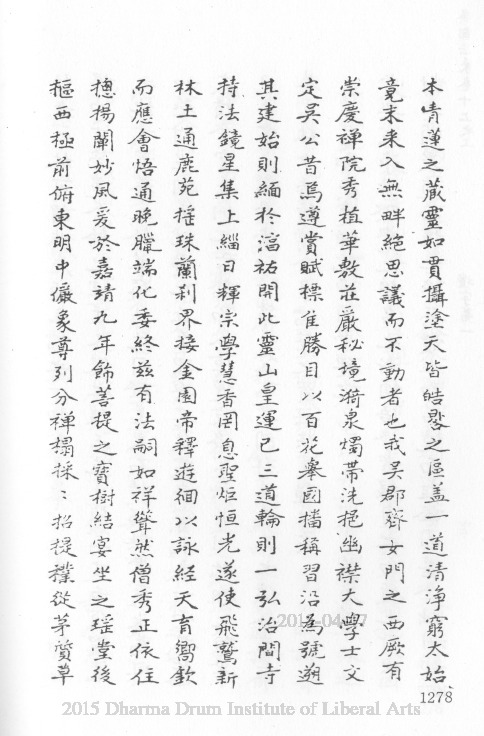 本青蓮之藏靈如貫攝塗天皆皓啓之區盖一道清淨窮太始
竟末來入無畔絕思議而不動者也我吴郡齊女門之西厥有
崇慶禪院秀植華敷莊嚴秘境漪泉燭帶洗挹幽襟大學士文
定吴公昔焉遵賞賦標隹勝目以百花轝國擋稱習沿為號遡
其建始則緬扵淳祐開此靈山皇運已三道輪則一弘治間寺
持法鏡星集上緇日輝宗學慧香罔息聖炬恒光遂使飛鷲新
林土通鹿苑摇珠蘭刹界接金園帝釋遊徊以詠經天育嚮欽
而應會悟通晚臘端化委終兹有法嗣如祥聳然僧秀正依住
揚闡妙風爰於嘉靖九年飾菩提之寶樹結宴坐之瑶堂後
樞西極前俯東明中儼象尊列分禅榻採〻招提襆從茅質草
1278
2015-04-07
2015 Dharma Drum Institute of Liberal Arts